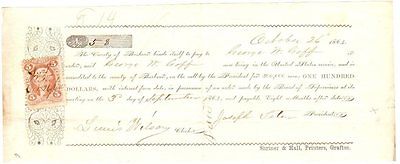 No 58
October 26 1863
The County of Barbour binds itself to pay to George W. Goff or
order, said George W. Goff now being in the United States service, and is
accredited to the county of Barbour, on the call by the President for 300,000 men, ONE HUNDRED
DOLLARS, with interest from date, in pursuance of an order made by the Board of Supervisors at its
meeting on the 3d day of September 1863, and payable Eight Months after date.
Lewis Wilson Clerk Joseph President
Sumner & Hall, Printers, Grafton.